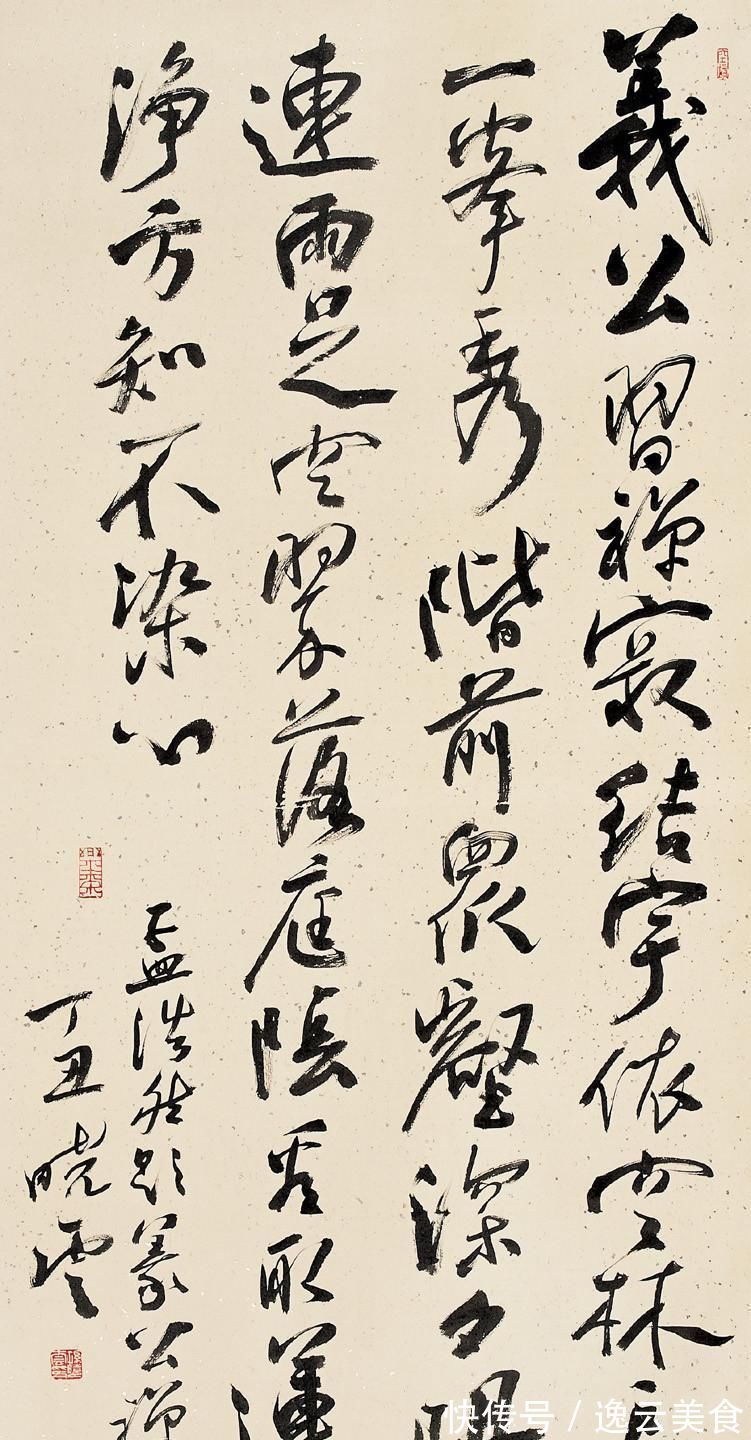 義公習禪寂結宇依空林
一峯秀階前眾壑深夕
連雨足空翠落庭陰看取蓮
淨方知不染心
孟浩然題義公禪
丁丑曉雲
快传号 / 逸云美食